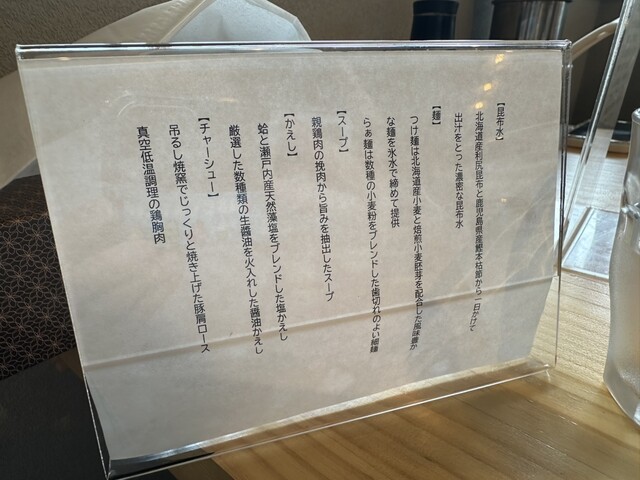 【昆布水】
北海道産利尻昆布と鹿児島県産鰹本枯節から一日かけて
出汁をとった濃密な昆布水
【麺】
つけ麺は北海道産小麦と焙煎小麦胚芽を配合した風味豊か
な麺を氷水で締めて提供
らぁ麺は数種の小麦粉をブレンドした歯切れのよい細麺
【スープ】
親鶏肉の挽肉から旨みを抽出したスープ
【かえし】
蛤と瀬戸内産天然藻塩をブレンドした塩かえし
厳選した数種類の生醤油を火入れした醤油かえし
【チャーシュー】
吊るし焼窯でじっくりと焼き上げた豚肩ロース
真空低温調理の鶏胸肉